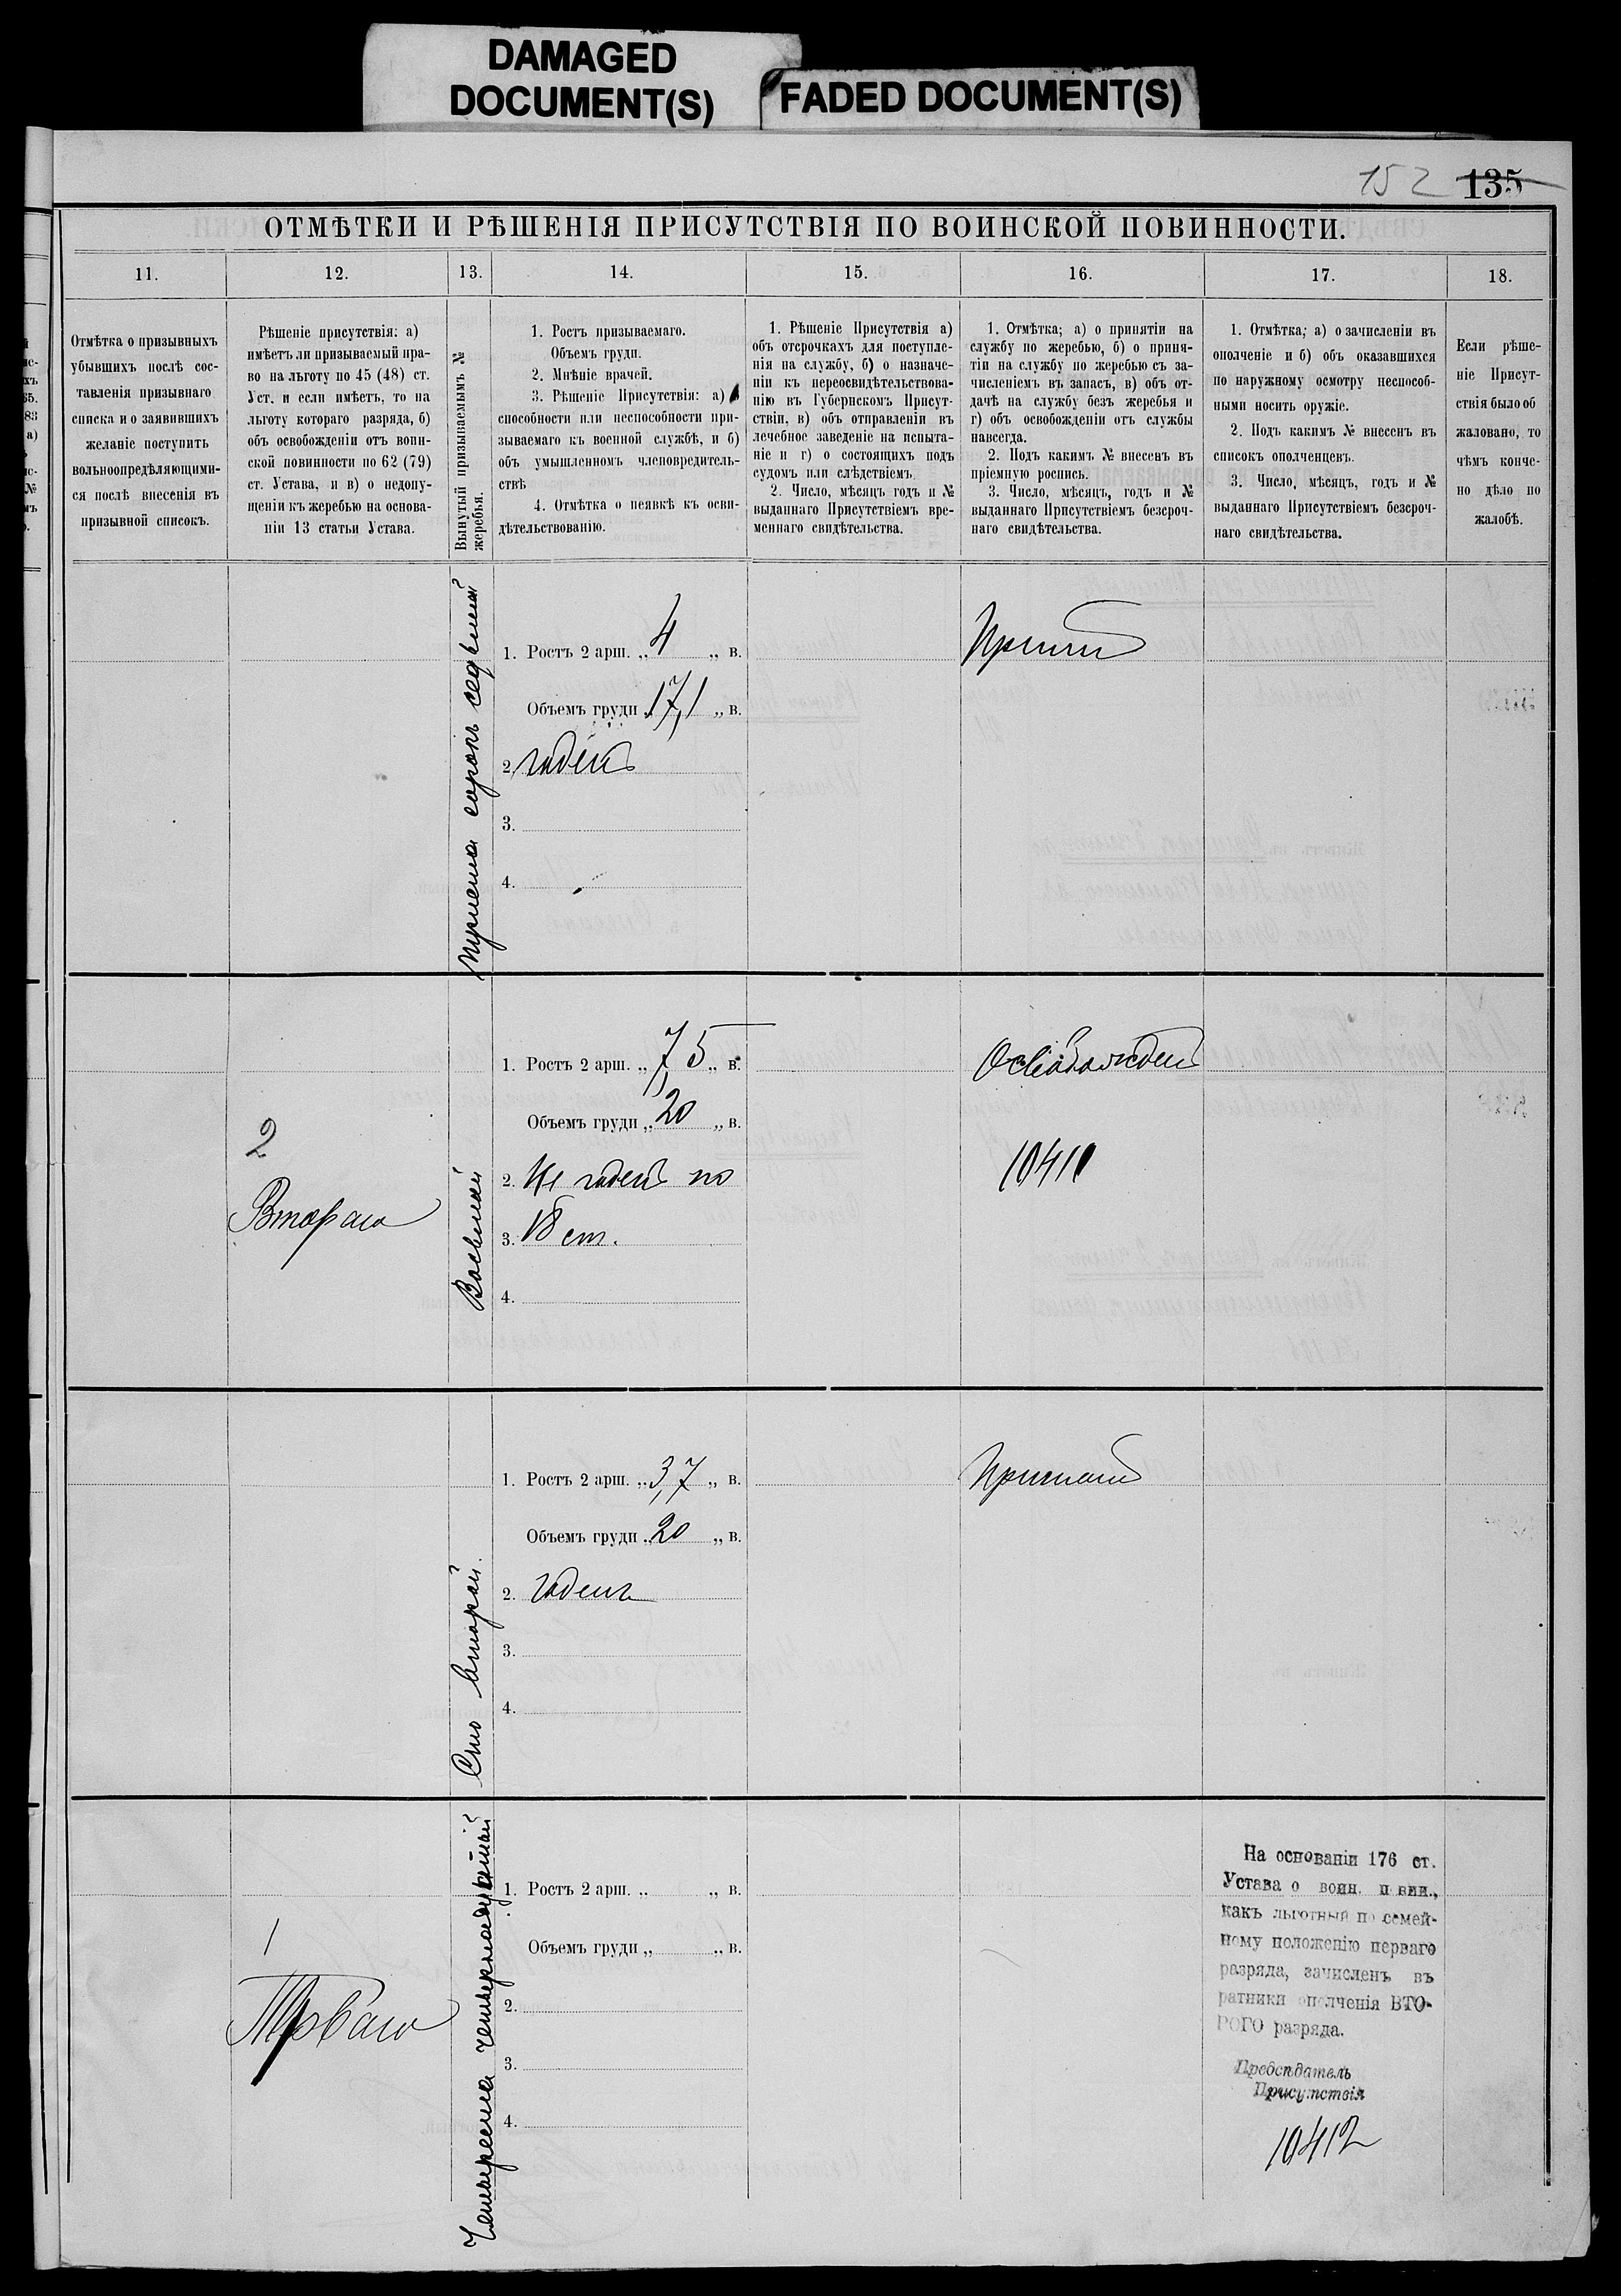 DAMAGED
DOCUMENT(S)
FADED DOCUMENT(S)
152 135
ОТМѢТКИ И РѢШЕНІЯ ПРИСУТСТВІЯ ПО ВОИНСКОЙ ПОВИННОСТИ.
11.
12.
13.
14.
15.
16.
17.
18.
Отмѣтка о призывныхъ
убывшихъ послѣ сос-
тавленія призывнаго
списка и о заявившихъ
желаніе поступить
вольноопредѣляющими-
ся послѣ внесенія въ
призывной списокъ.
Рѣшеніе присутствія: а)
имѣетъ ли призываемый пра-
во на льготу по 45 (48) ст.
Уст. и если имѣетъ, то на
льготу котораго разряда, б)
объ освобожденіи отъ воин-
ской повинности по 62 (79)
ст. Устава, и в) о недопу-
щеніи къ жеребью на основа-
ніи 13 статьи Устава.
Вынутый призываемымъ №
жеребья.
1. Ростъ призываемаго.
Объемъ груди.
2. Мнѣніе врачей.
3. Рѣшеніе Присутствія: а)
способности или неспособности при-
зываемаго къ военной службѣ, и б)
объ умышленномъ членовредитель-
ствѣ
4. Отмѣтка о неявкѣ къ осви-
дѣтельствованію.
1. Рѣшеніе Присутствія а)
объ отсрочкахъ для поступле-
нія на службу, б) о назначе-
ніи къ переосвидѣтельствова-
нію въ Губернскомъ Присут-
ствіи, в) объ отправленіи въ
лечебное заведеніе на испыта-
ніе и г) о состоящихъ подъ
судомъ или слѣдствіемъ.
2. Число, мѣсяцъ годъ и №
выданнаго Присутствіемъ вре-
меннаго свидѣтельства.
1. Отмѣтка; а) о принятіи на
службу по жеребью, б) о приня-
тіи на службу по жеребью съ за-
численіемъ въ запасъ, в) объ от-
дачѣ на службу безъ жеребья и
г) объ освобожденіи отъ службы
навсегда.
2. Подъ какимъ № внесенъ въ
пріемную роспись.
3. Число, мѣсяцъ, годъ и №
выданнаго Присутствіемъ безсроч-
наго свидѣтельства.
1. Отмѣтка; а) о зачисленіи въ
ополченіе и б) объ оказавшихся
по наружному осмотру неспособ-
ными носить оружіе.
2. Подъ какимъ № внесенъ въ
списокъ ополченцевъ.
3. Число, мѣсяцъ, годъ и №
выданнаго Присутствіемъ безсроч-
наго свидѣтельства.
Если рѣше-
ніе Присут-
ствія было об
жаловано, то
чѣмъ конче-
но дѣло по
жалобѣ.
Триста сорокъ седьмой
1. Ростъ 2 арш. „ 4 „ в.
Объемъ груди 17,1 „ в.
2. годенъ
3.
4.
Принятъ
2
Втораго
Восьмой
1. Ростъ 2 арш. „ 7,5 „ в.
Объемъ груди „ 20 „ в.
2. Не годенъ по
3. 18 ст.
4.
Освобожденъ
10411
Сто второй.
1. Ростъ 2 арш. „ 3,7 „ в.
Объемъ груди „ 20 „ в.
2. годенъ
3.
4.
Принятъ
1
Перваго
1. Ростъ 2 арш. „ „ в.
Объемъ груди „ „ в.
2.
3.
4.
На основаніи 176 ст.
Устава о воин. повин.,
какъ льготный по семей-
ному положенію перваго
разряда, зачисленъ въ
ратники ополченія ВТО-
РОГО разряда.
Предсѣдатель
Присутствія
10412